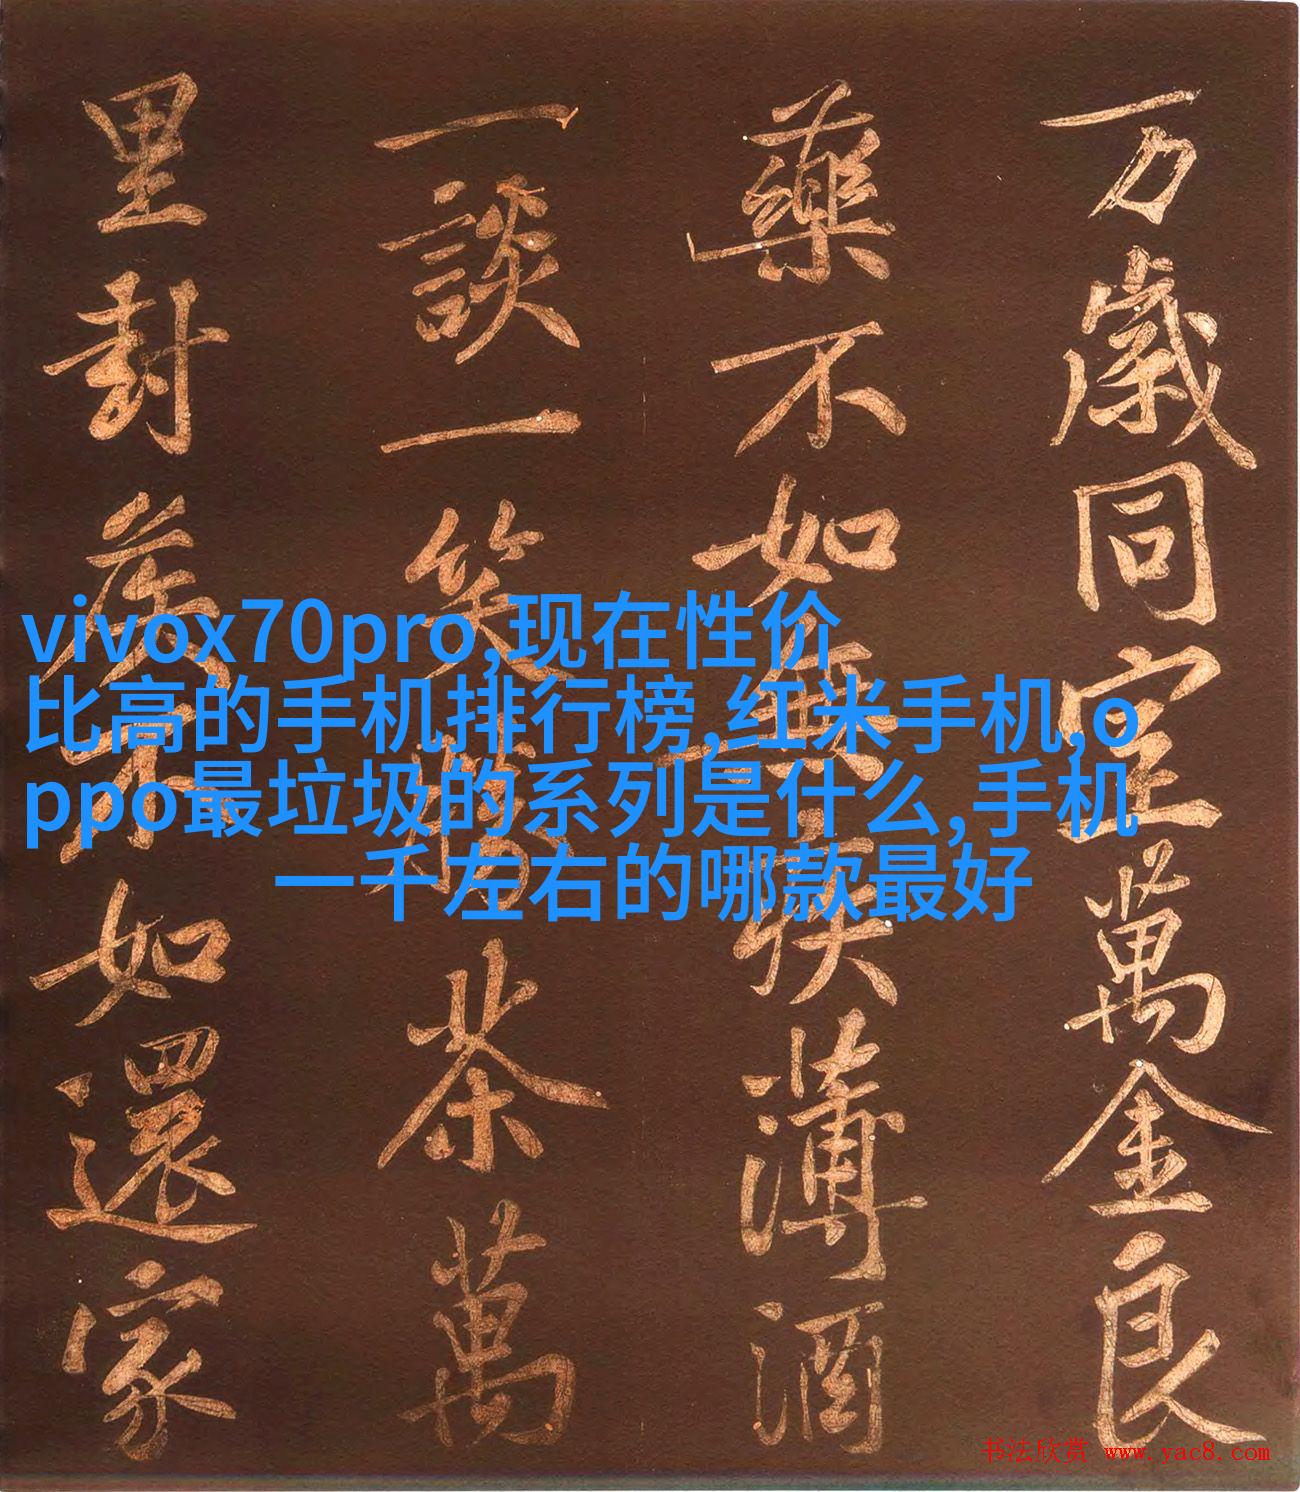 万歲同室萬金良
藥不如無疾薄酒
一談一笑勝茶萬
里封侯不如還家
vivox70pro,现在性价
比高的手机排行榜,红米手机,o
ppo最垃圾的系列是什么,手机
一千左右的哪款最好
书法欣赏 www.yac8.com